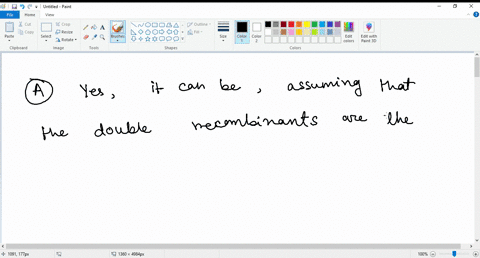 Untitled - Paint
File Home View
Paste
Cut
Copy
Select
Crop
Resize
Rotate
Brushes
Outline
Fill
Size
Color 1
Color 2
Edit colors
Edit with Paint 3D
Clipboard Image Tools Shapes Colors
A Yes, it can be, assuming that
the double recombinants are the
1091, 177px
100%